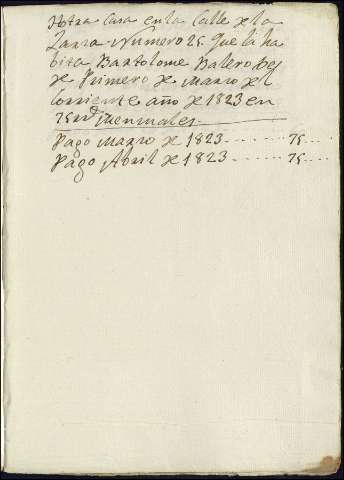 Hotra Casa en la Calle de la
Zarza Numero 25 Que la ha
bita Bartolome Balero des
de Primero de Marzo del
Corriente año de 1823 en
75 rrs menuales
Pago Marzo de 1823 ........ 75 ....
Pago Abril de 1823 ........ 75 ....